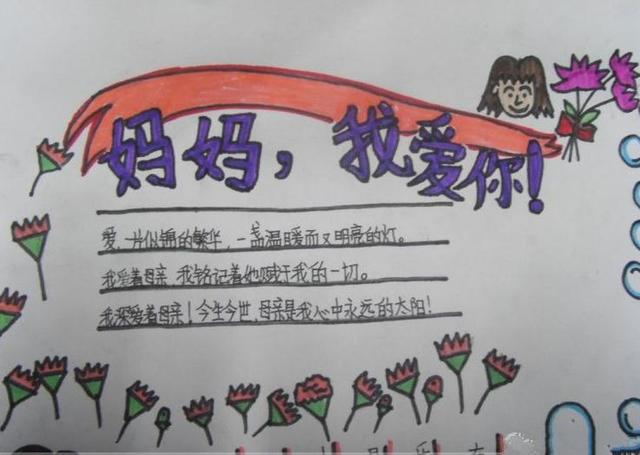 妈妈，我爱你！
爱，一片似锦的繁华，一盏温暖而又明亮的灯。
我爱着母亲，我铭记着她赋于我的一切。
我深爱着母亲！今生今世，母亲是我心中永远的太阳！